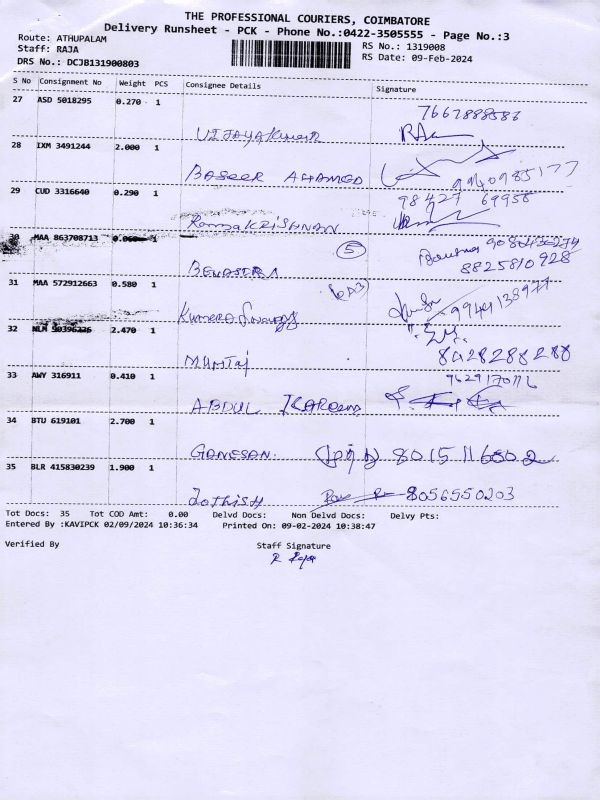 THE PROFESSIONAL COURIERS, COIMBATORE
Delivery Runsheet - PCK - Phone No.:0422-3505555 - Page No.:3
Route: ATHUPALAM
Staff: RAJA
DRS No.: DCJB131900803
RS No.: 1319008
RS Date: 09-Feb-2024
S No Consignment No Weight PCS Consignee Details Signature
27 ASD 5018295 0.270 1
7667888586
VIJAYAKUMAR
28 IXM 3491244 2.000 1
BASEER AHAMED
9940985177
29 CUD 3316640 0.290 1
98427 69958
RamaKRISHNAN
30 MAA 863708713 0.060 1
5
9080436274
8825810928
BENASERA
31 MAA 572912663 0.580 1
9944138977
32 NLM 50396226 2.470 1
8028288288
MUMTAJ
33 AWY 316911 0.410 1
9629170116
ABDUL KAREEM
34 BTU 619101 2.700 1
GANESAN 8015116502
35 BLR 415830239 1.900 1
JOTHISH 8056550203
Tot Docs: 35 Tot COD Amt: 0.00 Delvd Docs: Non Delvd Docs: Delvy Pts:
Entered By :KAVIPCK 02/09/2024 10:36:34 Printed On: 09-02-2024 10:38:47
Verified By Staff Signature
R Raja